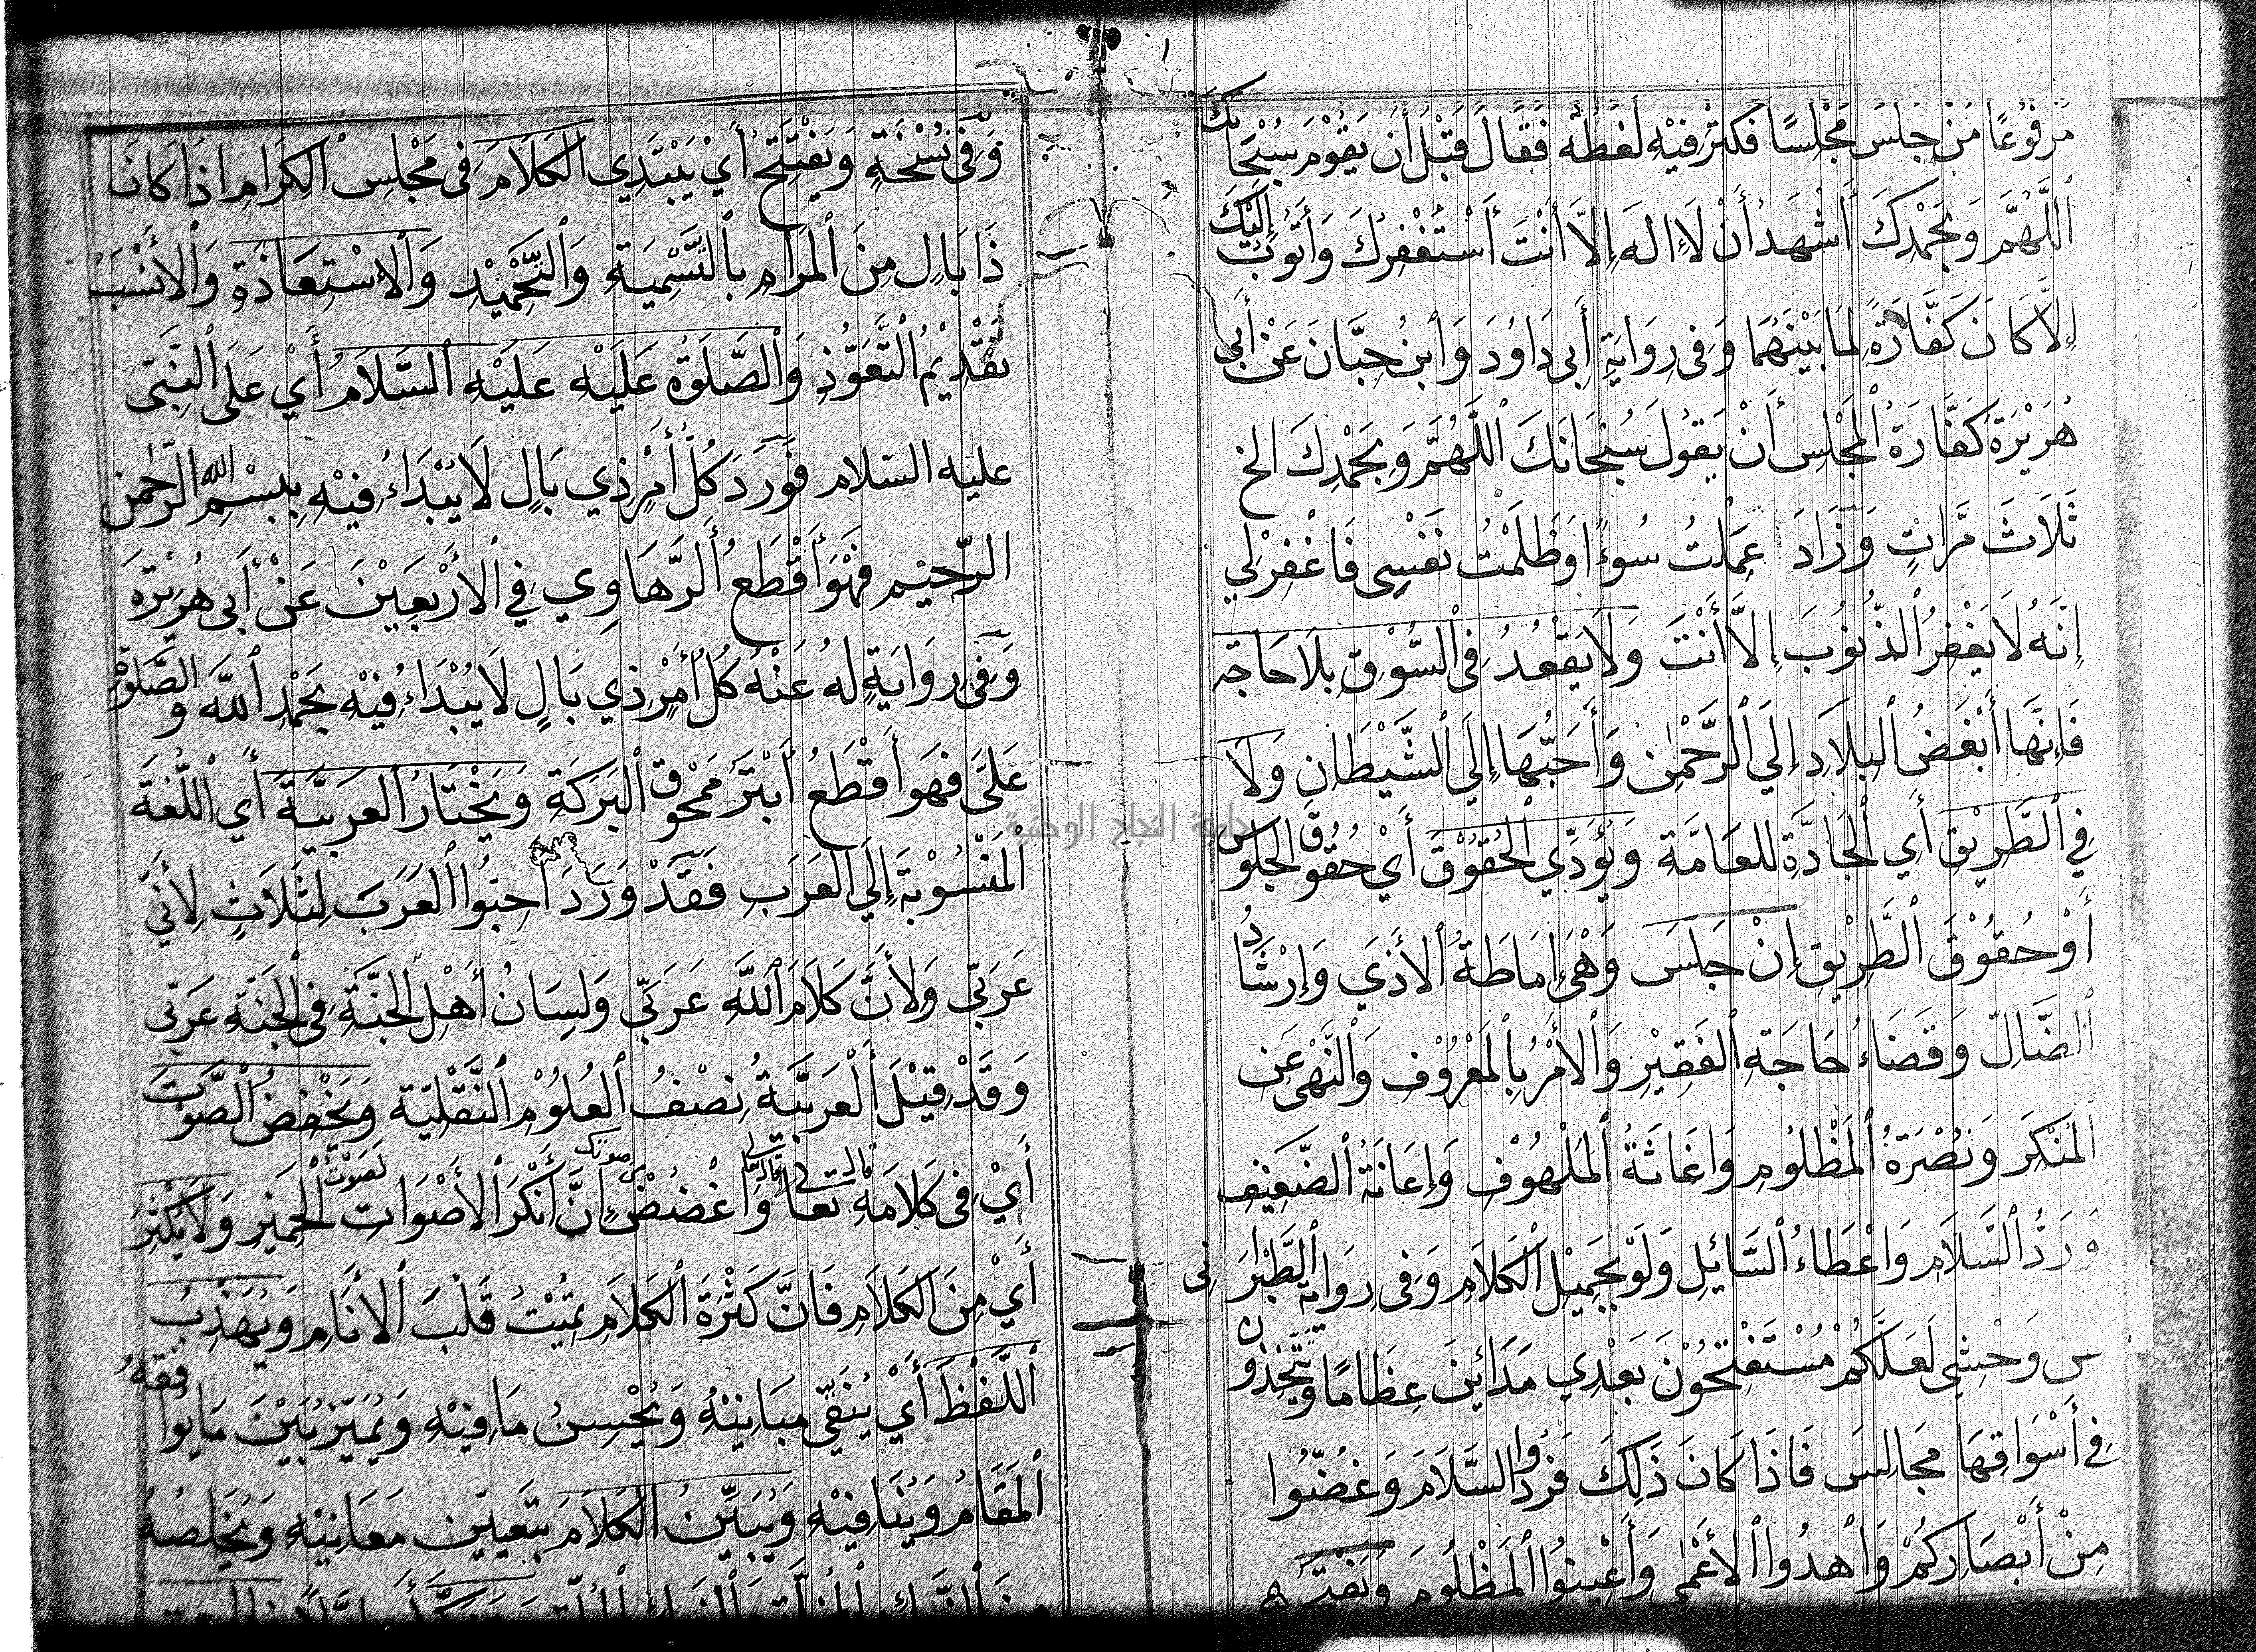 مَرْفُوعًا مَنْ جَلَسَ مَجْلِسًا فَكَثُرَ فِيْهِ لَغَطُهُ فَقَالَ قَبْلَ أَنْ يَقُوْمَ سُبْحَانَكَ
اَللَّهُمَّ وَبِحَمْدِكَ أَشْهَدُ أَنْ لَا إِلَهَ إِلَّا أَنْتَ أَسْتَغْفِرُكَ وَأَتُوبُ إِلَيْكَ
إِلَّا كَانَ كَفَّارَةً لِمَا بَيْنَهُمَا وَفِي رِوَايَةِ أَبِي دَاوُدَ وَابْنِ حِبَّانَ عَنْ أَبِي
هُرَيْرَةَ كَفَّارَةُ الْمَجْلِسِ أَنْ يَقُولَ سُبْحَانَكَ اللَّهُمَّ وَبِحَمْدِكَ الخ
ثَلَاثَ مَرَّاتٍ وَزَادَ عَمِلْتُ سُوءً اوَظَلَمْتُ نَفْسِي فَاغْفِرْلِي
إِنَّهُ لَا يَغْفِرُ الذُّنُوبَ إِلَّا أَنْتَ وَلَا يَقْعُدُ فِي السُّوْقِ بِلَا حَاجَة
فَإِنَّهَا أَبْغَضُ الْبِلَادِ إِلَي الرَّحْمٰنِ وَأَحَبُّهَا إِلَي الشَّيْطَانِ وَلَا
فِي الطَّرِيْقِ أَيِ الْجَادَّةِ لِلْعَامَّةِ وَيُؤَدِّي الْحُقُوْقَ أَيْ حُقُوقَ الْجُلُوسِ
أَوْ حُقُوْقَ الطَّرِيْقِ إِنْ جَلَسَ وَهْيَ إِمَاطَةُ الْأَذَي وَإِرْشَادُ
الضَّالِّ وَقَضَاءُ حَاجَةِ الْفَقِيْرِ وَالْأَمْرُ بِالْمَعْرُوْفِ وَالنَّهْيُ عَنِ
الْمُنْكَرِ وَنُصْرَةُ الْمَظْلُومِ وَاغَاثَةُ الْمَلْهُوْفِ وَإِعَانَةُ الضَّعِيْفِ
وَرَدُّ السَّلَامِ وَاعْطَاءُ السَّائِلِ وَلَوْ بِجَمِيْلِ الْكَلَامِ وَفِي رِوَايَةِ الطَّبْرَانِي
س وَحْشِي لَعَلَّكُمْ سْتَفْتِحُوْنَ بَعْدِي مَدَائِنَ عِظَامًا وَتَتَّخِذُونَ
فِي أَسْوَاقِهَا مَجَالِسَ فَاذَا كَانَ ذَلِكَ فَرُدُّوا السَّلَامَ وَغُضُّوا
مِنْ أَبْصَارِكُمْ وَاهْدُوا الْأَعْمَى وَأَعِيْنُوا الْمَظْلُومَ وَيَفْتَتِـ
وَفِي نُسْخَةٍ وَيَفْتَتِحُ أَيْ يَبْتَدِي الْكَلَامَ فِي مَجْلِسِ الْكِرَامِ اذَا كَانَ
ذَا بَالٍ مِنَ الْمَرَامِ بِالتَّسْمِيَةِ وَالتَّحْمِيْدِ وَالْاسْتِعَاذَةِ وَالْأَنْسَبُ
تَقْدِيْمُ التَّعَوُّذِ وَالصَّلٰوةُ عَلَيْهِ عَلَيْهِ السَّلَامُ أَيْ عَلَى النَّبِيِّ
عليه السلام فَوَرَدَ كُلُّ أَمْرٍ ذِي بَالٍ لَا يُبْدَاءُ فِيْهِ بِبِسْمِ اللهِ الرَّحْمنِ
الرَّحِيْمِ فَهْوَ أَقْطَعُ الرَّهَاوِي فِي الْأَرْبَعِيْنَ عَنْ أَبِي هُرَيْرَةَ
وَفِي رِوَايَةٍ لَهُ عَنْهُ كُلُّ أَمْرٍ ذِي بَالٍ لَا يُبْدَاءُ فِيْهِ بِحَمْدِ اللَّهِ وَالصَّلٰوةِ
عَلَيَّ فَهْوَ أَقْطَعُ أَبْتَرُ مَمْحُوقُ الْبَرَكَةِ وَيَخْتَارُ الْعَرَبِيَّةَ أَيِ اللُّغَةَ
الْمَنْسُوْبَةَ إِلَي الْعَرَبِ فَقَدْ وَرَدَ احِبُّوا الْعَرَبَ لِثَلَاثٍ لِأَنِّي
عَرَبِيّ وَلِأَنَّ كَلَامَ اللَّهِ عَرَبِيّ وَلِسَانُ أَهْلِ الْجَنَّةِ فِي الْجَنَّةِ عَرَبِيّ
وَقَدْ قِيْلَ الْعَرَبِيَّةُ نِصْفُ الْعُلُوْمِ النَّقْلِيّة وَيَخْفِضُ الصَّوْتَ
أَيْ فِي كَلَامَهِ قال تَعَالى وَاغْضُضْ من صوتك إِنَّ أَنْكَرَ الْأَصْوَاتِ لَصَوْتُ الْحَمِيْرِ وَلَا يُكْثِرُ
أَيْ مِنَ الْكَلَامِ فَانَّ كَثْرَةَ الْكَلَامِ تُمِيْتُ قَلْبَ الْأَنَامِ وَيُهَذِّبُ
اللَّفْظَ أَيْ يُنَقِّي مَبَانِيْهُ وَيُحْسِنُ مَا فِيْهِ وَيُمَيِّزُ بَيْنَ مَا يُوافِقهُ
الْمَقَامُ وَيُنَافِيْهِ وَيُبَيِّنُ الْكَلَامَ بِتَعْيِيْنِ مَعَانِيْهِ وَيُخَلِّصُهُ
جامعة النجاح الوطنية